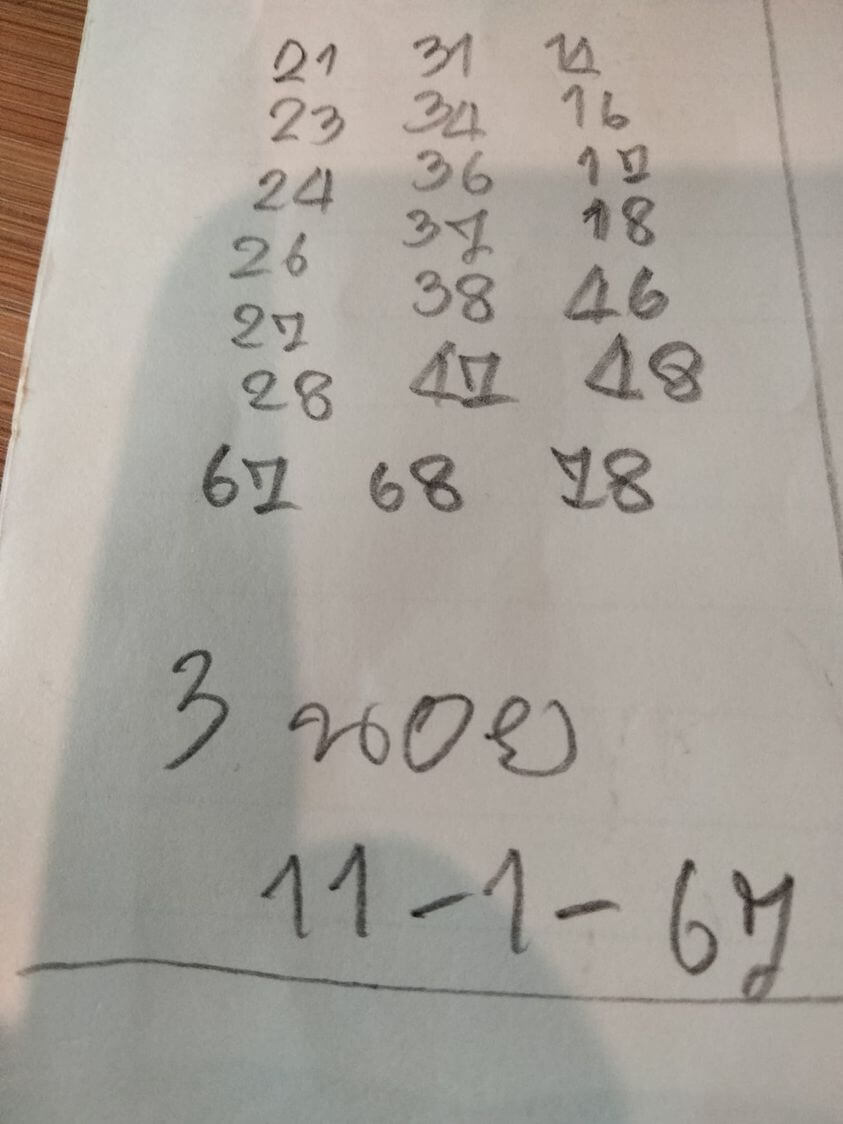 21 31 14
23 34 16
24 36 17
26 37 18
27 38 46
28 47 48
67 68 78
3 นอย
11-1-67